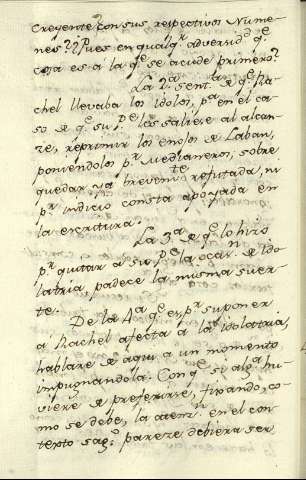 creyente con sus respectivos Nume-
nes?? Pues en qualqr adversidd qe
cosa es a la qe se acude primero?
La 2a sentª de qe Ra-
chel llevaba los idolos, pa en el ca-
so de qe su Pe les saliere al alcan-
ze, reprimir los enojos de Laban,
poniendolos pr medianeros, sobre
quedar ya brevemte refutada, ni
pr indicio consta apoyada en
la escritura.
La 3a de qe lo hizo
pr quitar a su Pe la ocan de ido
latria, padece la misma suer-
te.
De la 4a qe es pr suponer
a Rachel afecta a la idolatria,
hablare de aqui a un momento,
impugnandola. Con qe si alga hu-
viere de preferirse, fixando, co-
mo se debe, la atenn en el con-
texto sago parece debiera ser